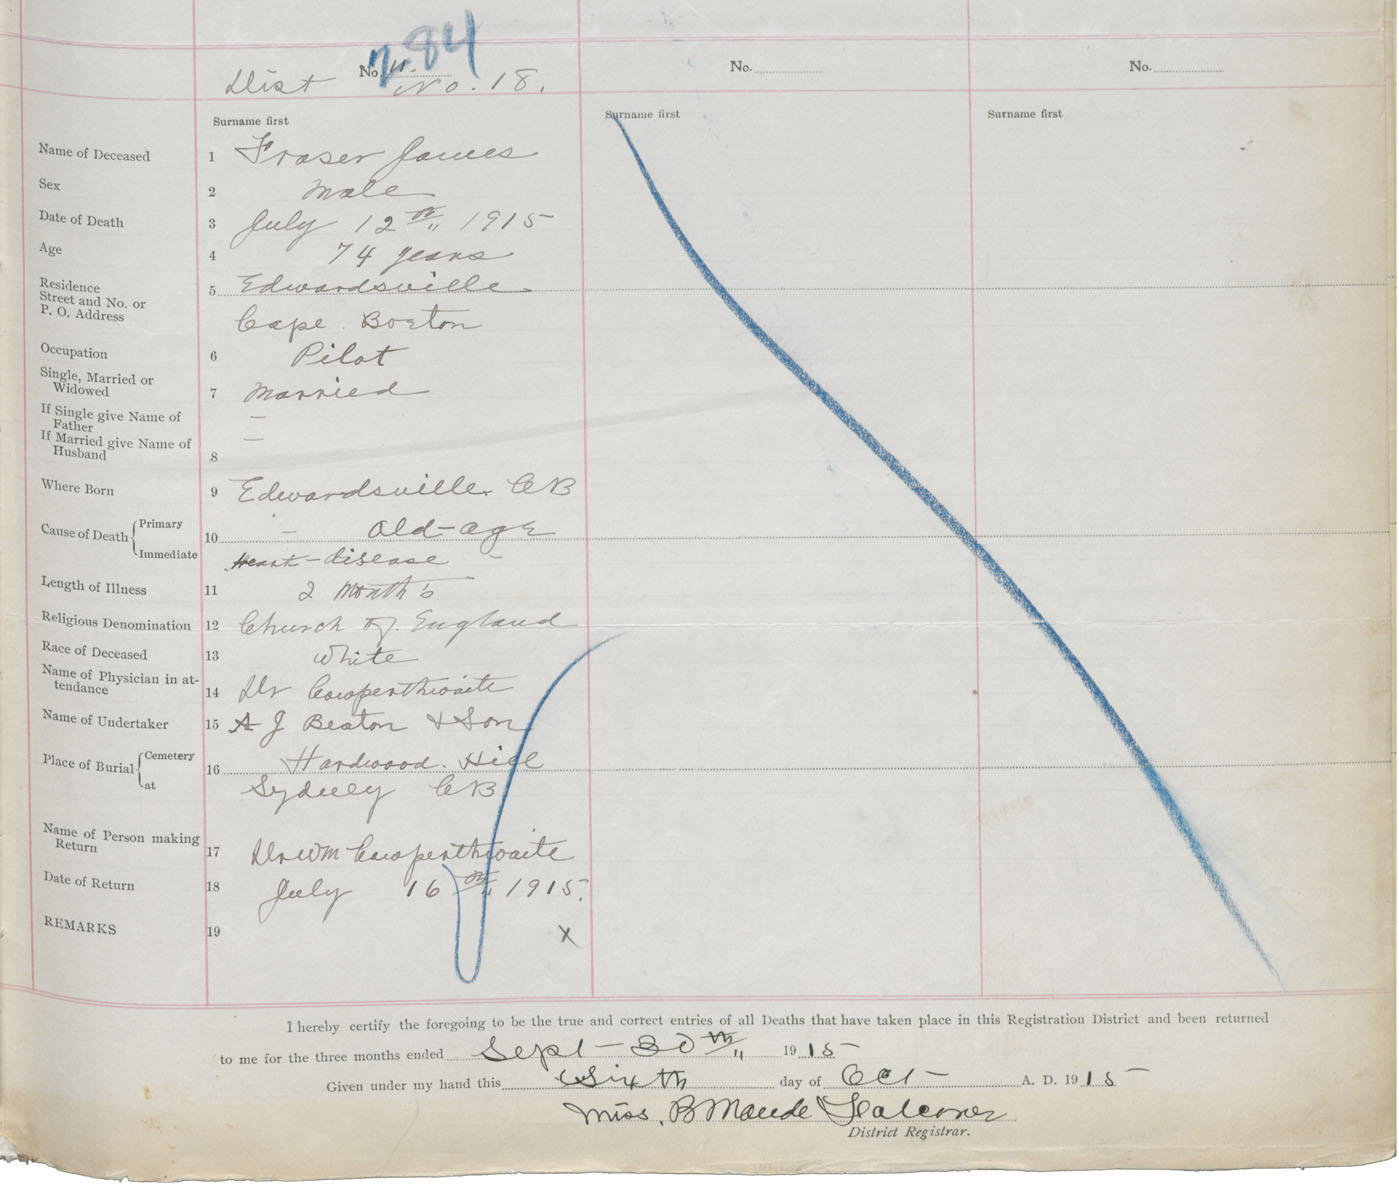 284
No. 11. No. No.
Dist No. 18.
Surname first Surname first Surname first
Name of Deceased 1 Fraser James
Sex 2 Male
Date of Death 3 July 12th 1915
Age 4 74 years
Residence 5 Edwardsville
Street and No. or
P. O. Address Cape Breton
Occupation 6 Pilot
Single, Married or
Widowed 7 Married
If Single give Name of —
Father
If Married give Name of —
Husband 8
Where Born 9 Edwardsville CB
Cause of Death Primary 10 – Old-age
Immediate Heart-disease –
Length of Illness 11 2 Month's
Religious Denomination 12 Church of England
Race of Deceased 13 White
Name of Physician in at-
tendance 14 Dr Cowperthwaite
Name of Undertaker 15 A J Beaton & Son
Place of Burial Cemetery 16 Hardwood Hill
at Sydney CB
Name of Person making
Return 17 Dr Wm Cowperthwaite
Date of Return 18 July 16th 1915.
REMARKS 19 x
I hereby certify the foregoing to be the true and correct entries of all Deaths that have taken place in this Registration District and been returned
to me for the three months ended Sept– 30th 1915
Given under my hand this Sixth day of Oct– A. D. 1915
Miss. B Maude Falconer
District Registrar.